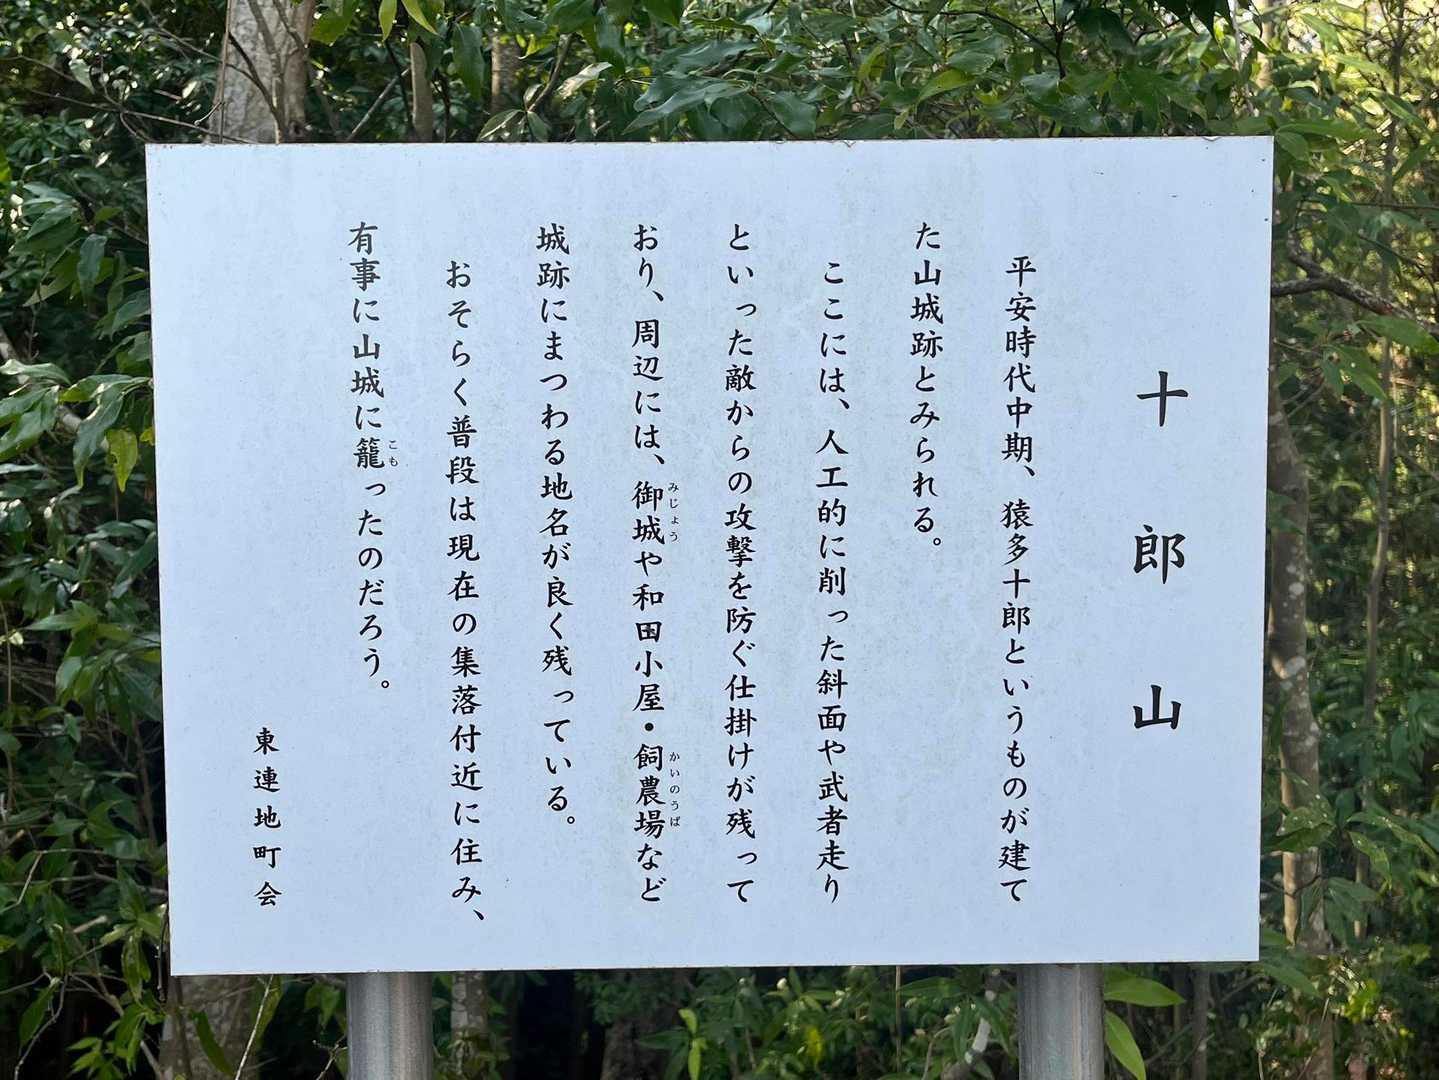 十郎山
平安時代中期、猿多十郎というものが建て
た山城跡とみられる。
ここには、人工的に削った斜面や武者走り
といった敵からの攻撃を防ぐ仕掛けが残って
おり、周辺には、御城や和田小屋・飼農場など
みじょう
かいのうば
城跡にまつわる地名が良く残っている。
おそらく普段は現在の集落付近に住み、
有事に山城に籠ったのだろう。
こも
東連地町会